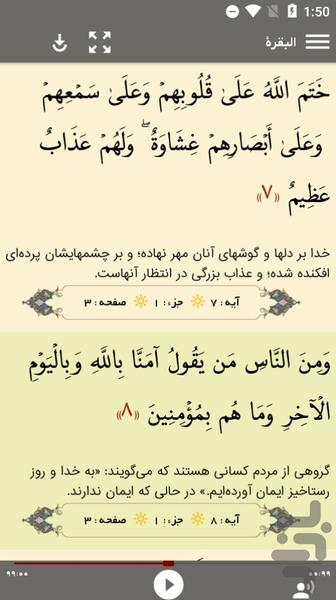 1:50
البقرة
خَتَمَ اللَّهُ عَلَىٰ قُلُوبِهِمْ وَعَلَىٰ سَمْعِهِمْ
وَعَلَىٰ أَبْصَارِهِمْ غِشَاوَةٌ ۖ وَلَهُمْ عَذَابٌ
عَظِيمٌ «٧»
خدا بر دلها و گوشهای آنان مهر نهاده؛ و بر چشمهایشان پرده‌ای
افکنده شده؛ و عذاب بزرگی در انتظار آنهاست.
آیه: ۷ جزء: ۱ صفحه: ۳
وَمِنَ النَّاسِ مَن يَقُولُ آمَنَّا بِاللَّهِ وَبِالْيَوْمِ
الْآخِرِ وَمَا هُم بِمُؤْمِنِينَ «٨»
گروهی از مردم کسانی هستند که می‌گویند: «به خدا و روز
رستاخیز ایمان آورده‌ایم.» در حالی که ایمان ندارند.
آیه: ۸ جزء: ۱ صفحه: ۳
۹۹:۰۰
۰۰:۹۹